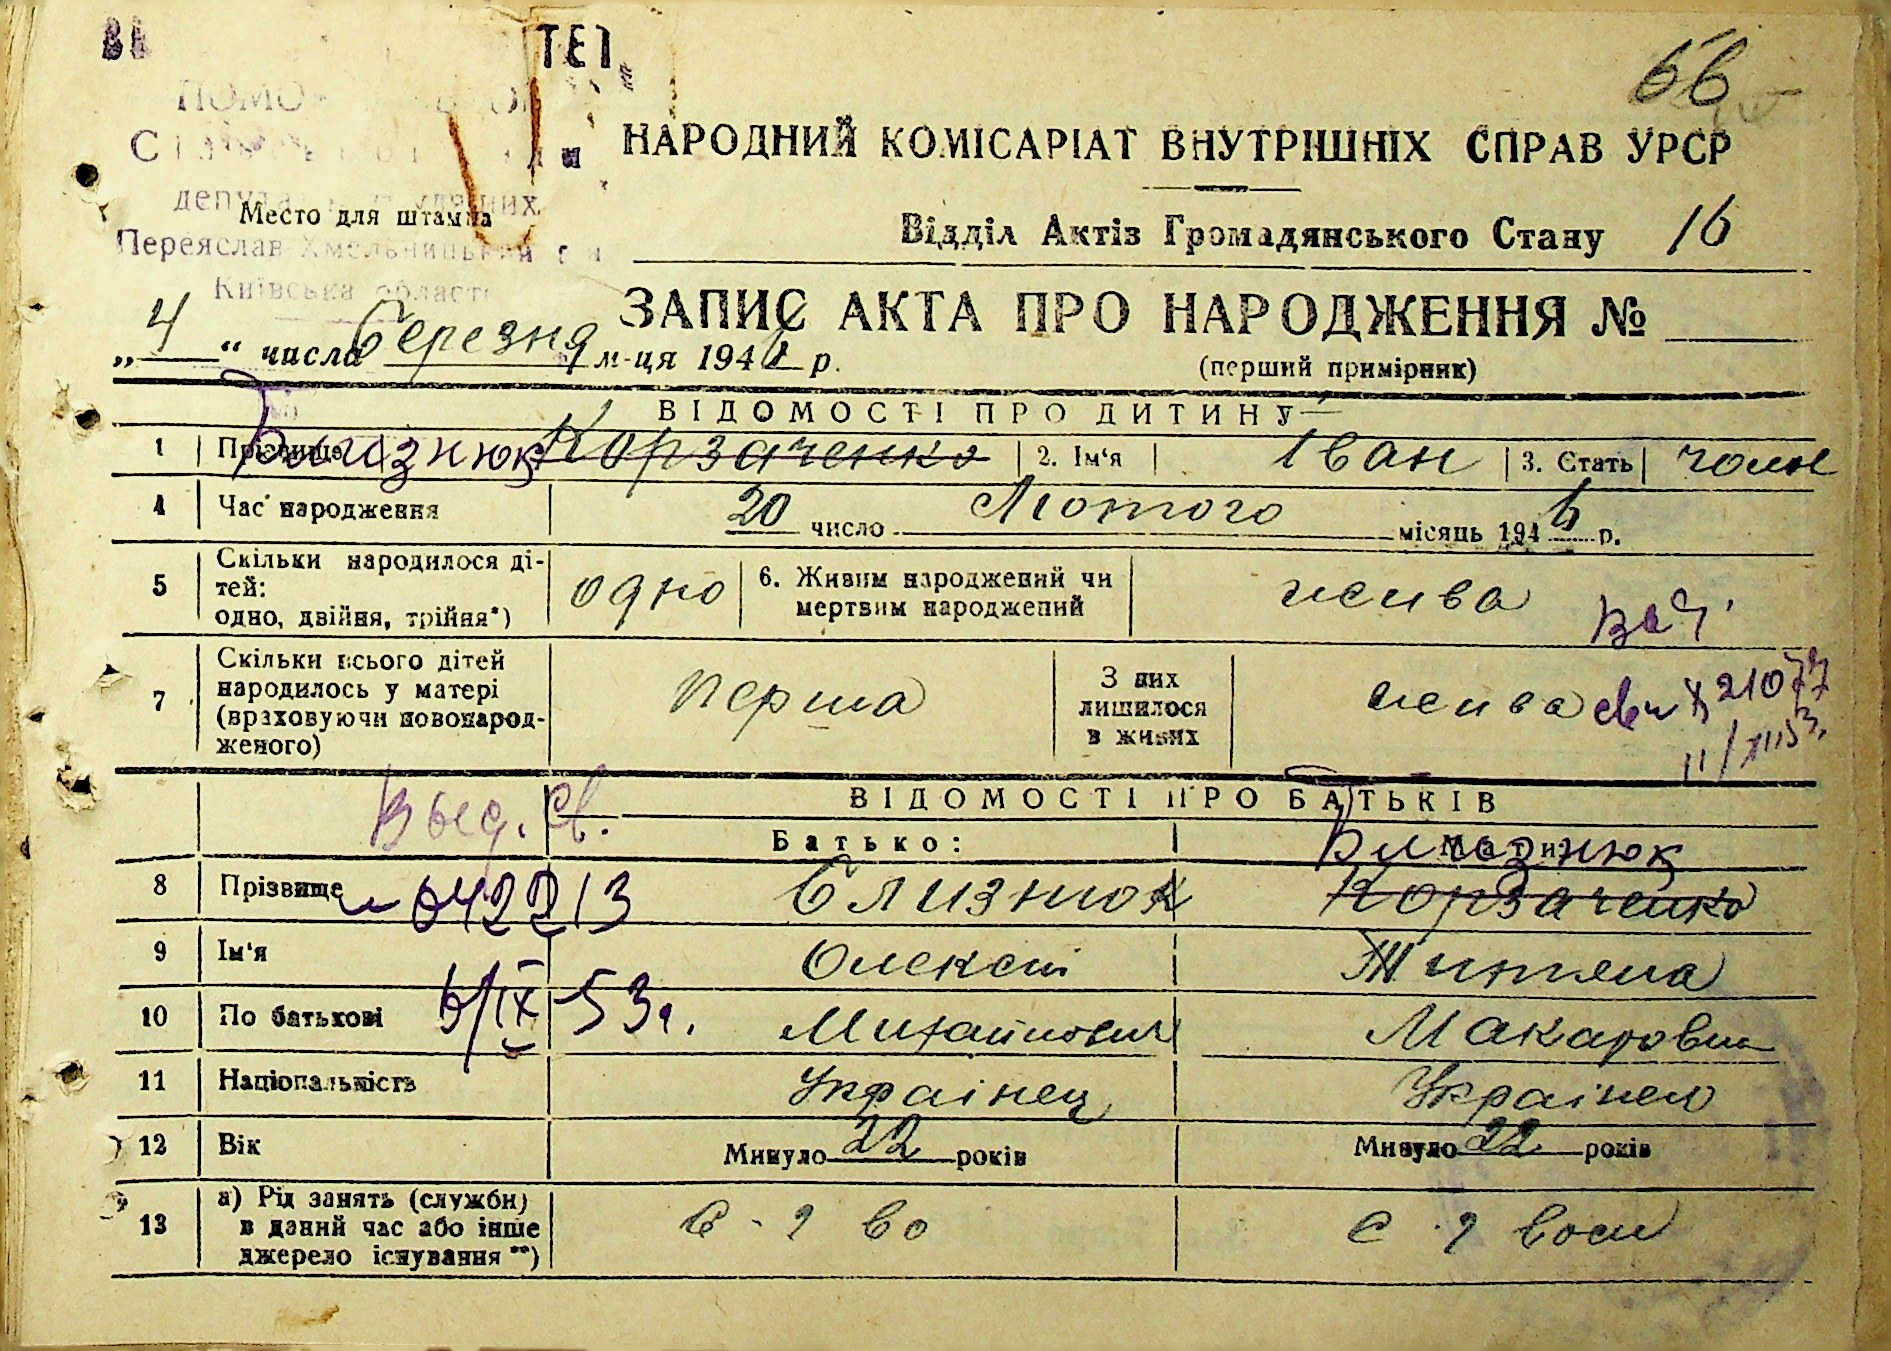 66
НАРОДНИЙ КОМІСАРІАТ ВНУТРІШНІХ СПРАВ УРСР
депута
Место для штампа
Переяслав Хмельницький
Київська област
Відділ Актів Громадянського Стану 16
ЗАПИС АКТА ПРО НАРОДЖЕННЯ №
„4“ числа березня м-ця 1946 р.
(перший примірник)
ВІДОМОСТІ ПРО ДИТИНУ
1 Прізвище Близнюк Корзаченко 2. Ім'я Іван 3. Стать чолов
4 Час народження 20 число Лютого місяць 1946 р.
5 Скільки народилося ді-
тей:
одно, двійня, трійня*) одно 6. Живим народжений чи
мертвим народжений жива
7 Скільки всього дітей
народилось у матері
(враховуючи новонарод-
женого) перша З них
лишилося
в живих жива
21077
Выд. св.
ВІДОМОСТІ ПРО БАТЬКІВ
Батько: Мати:
Близнюк
8 Прізвище 042213 Близнюк Корзаченко
9 Ім'я Олексій Титяна
10 По батькові 5/IX 53г. Михайлович Макаровна
11 Національність Українец Українка
12 Вік Минуло 22 років Минуло 22 років
13 а) Рід занять (служби)
в даний час або інше
джерело існування **)